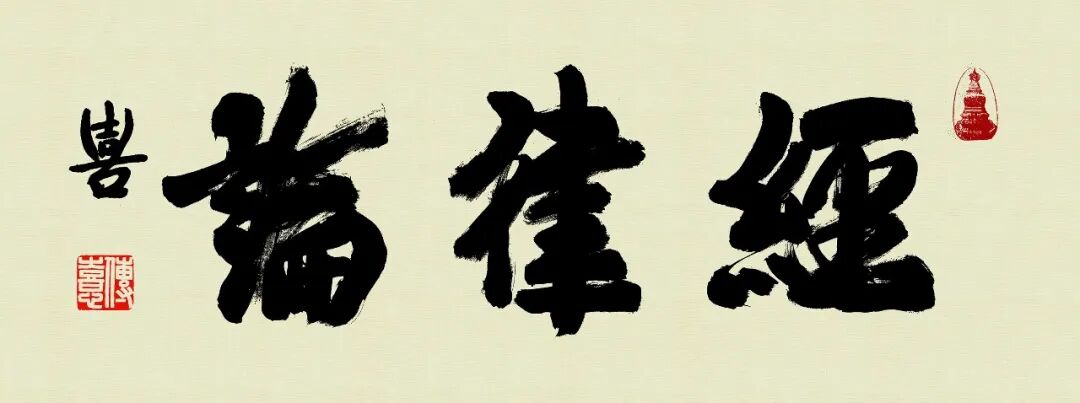 經律論
喜
傳憙